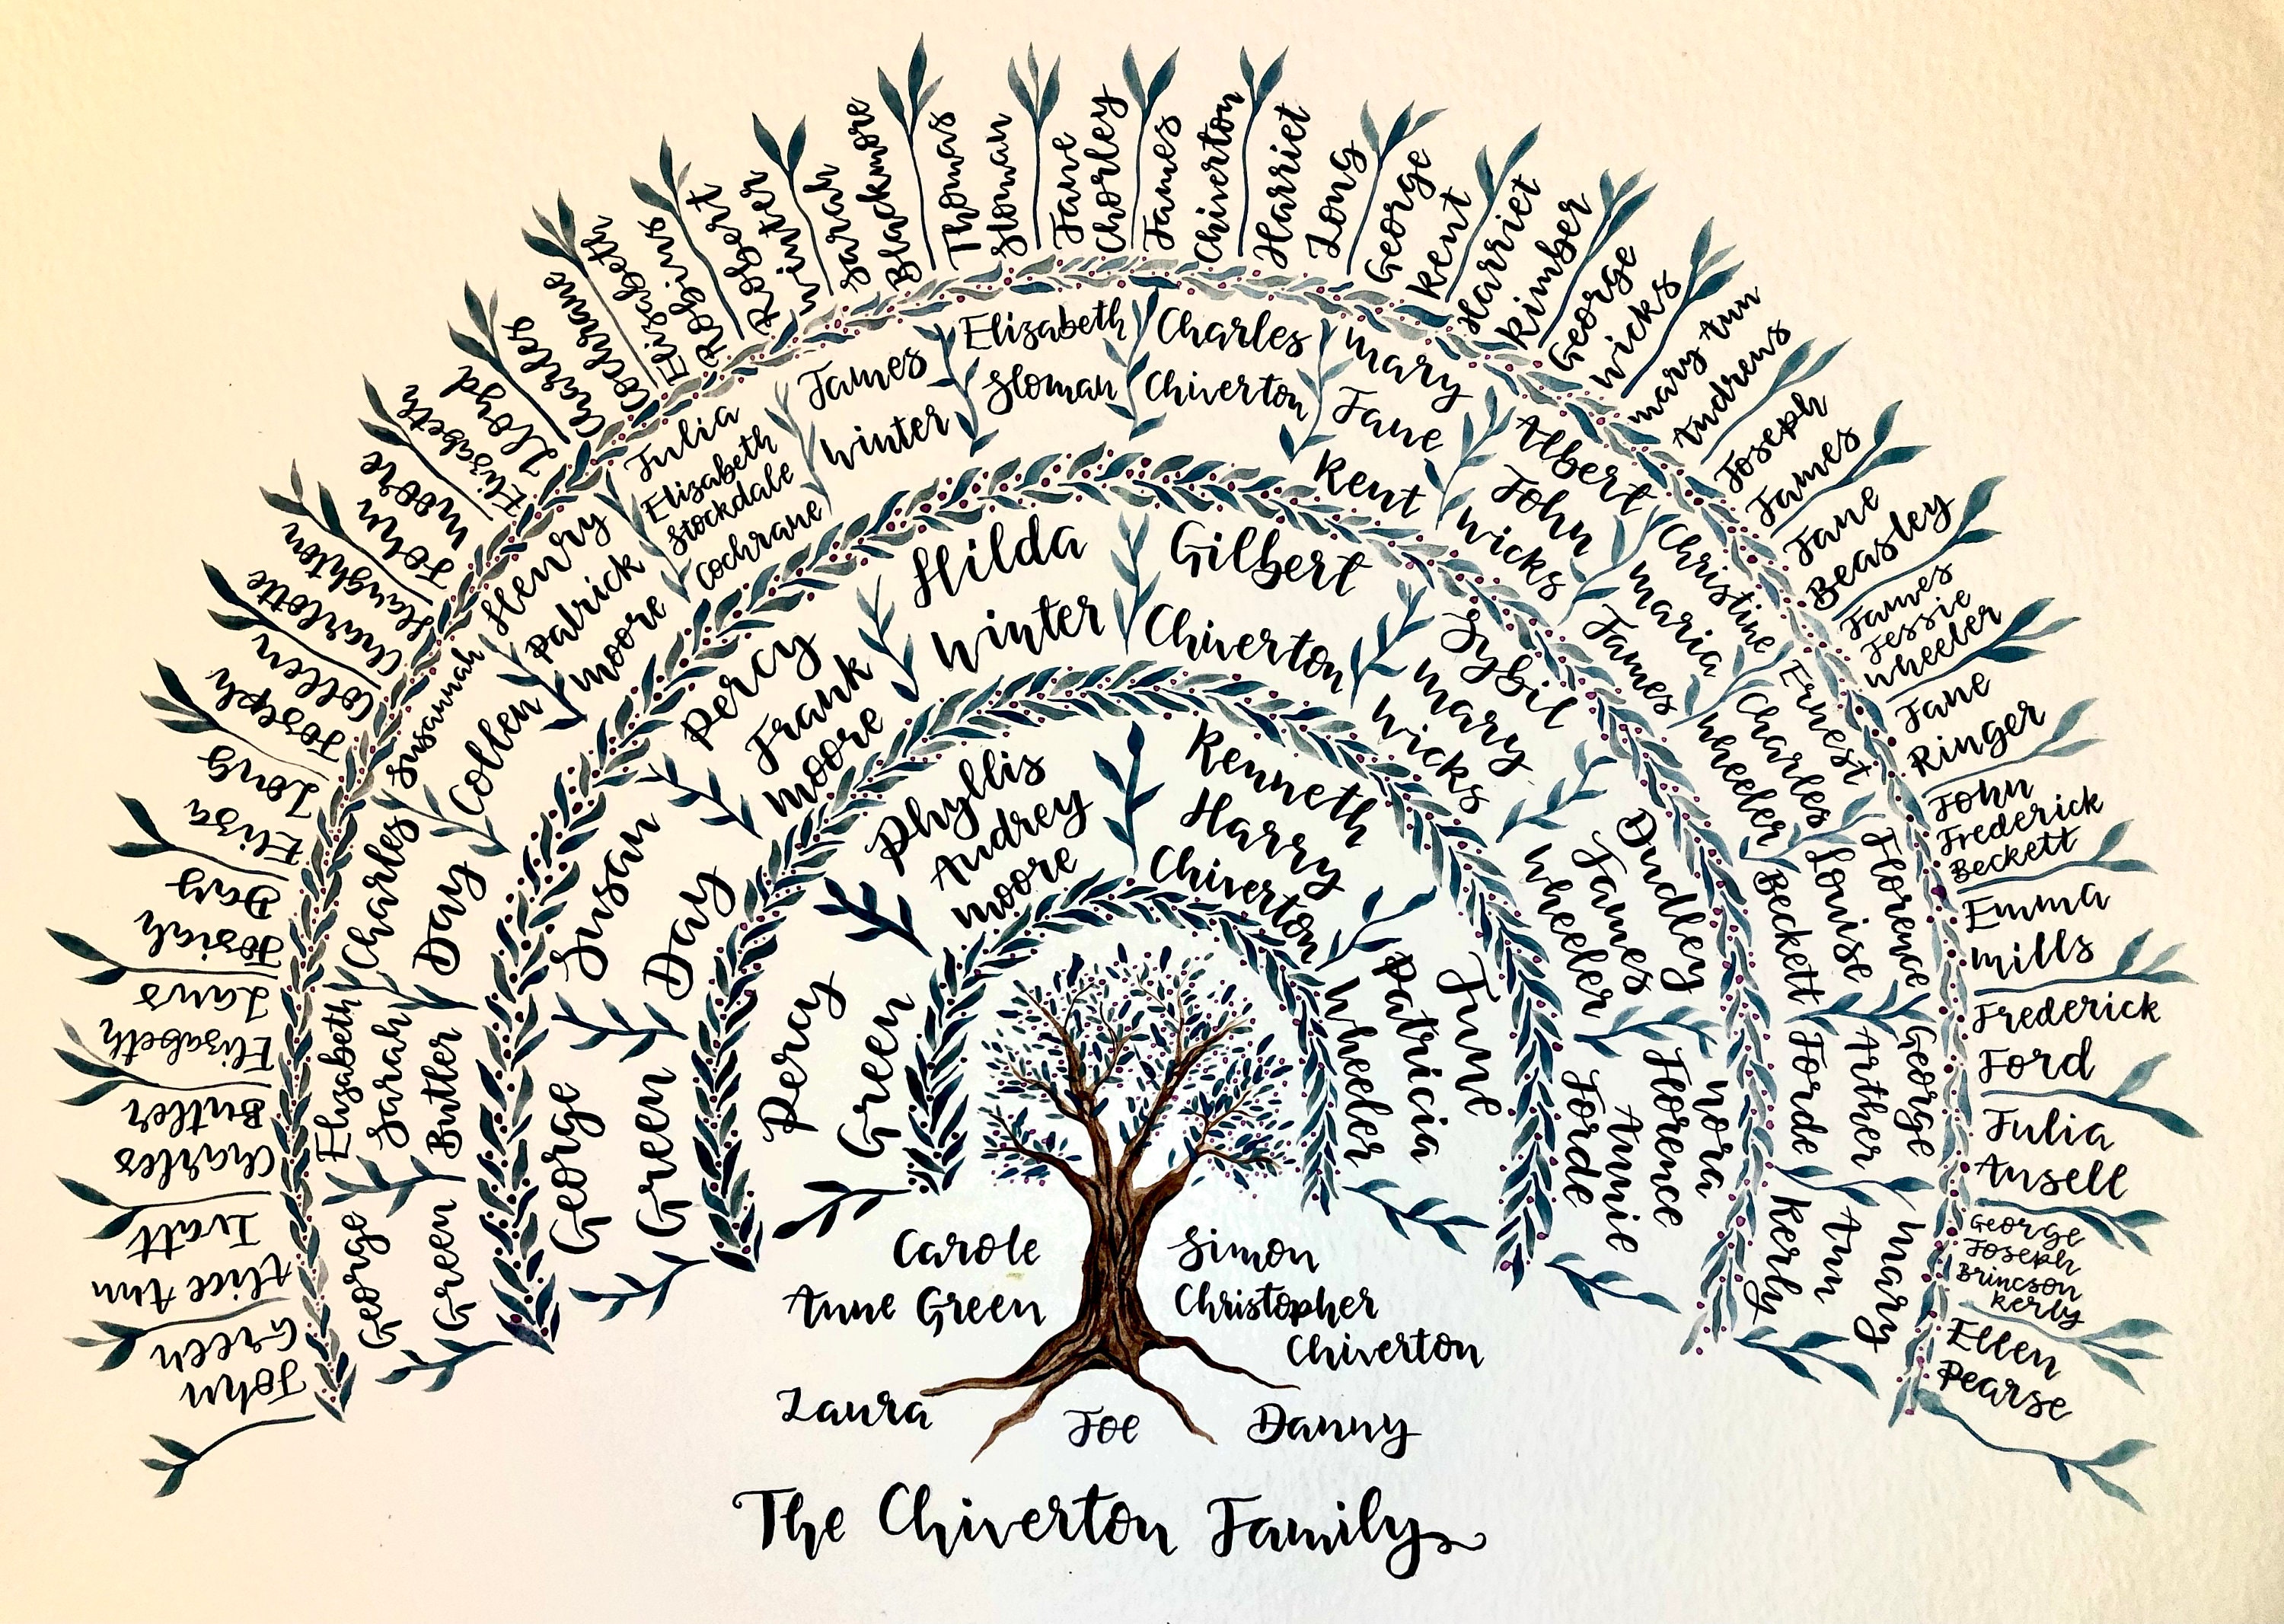 John
Green
Alice Ann
Ivatt
Charles
Butler
Elizabeth
Laws
Josiah
Day
Eliza
Long
Joseph
Collen
Charlotte
Haughton
John
Moore
Elizabeth
Lloyd
Charles
Cochrane
Elizabeth
Robins
Robert
Winter
Sarah
Blackmore
Thomas
Sloman
Jane
Chorley
James
Chiverton
Harriet
Long
George
Kent
Harriet
Kimber
George
Wicks
Mary Ann
Andrews
Joseph
James
Jane
Beasley
James
Jessie
Wheeler
Jane
Ringer
John
Frederick
Beckett
Emma
Mills
Frederick
Ford
Julia
Ansell
George
Joseph
Brincson
Kerby
Ellen
Pearse
George
Green
Elizabeth
Sarah
Butler
Charles
Day
Susannah
Collen
Henry
Patrick
Moore
Julia
Elizabeth
Stockdale
Cochrane
James
Winter
Elizabeth
Sloman
Charles
Chiverton
Mary
Jane
Kent
Albert
John
Wicks
Christine
Maria
James
Ernest
Charles
Wheeler
Florence
Louise
Beckett
George
Arther
Forde
Mary
Ann
Kerly
George
Green
Susan
Day
Percy
Frank
Moore
Hilda
Winter
Gilbert
Chiverton
Sybil
Mary
Wicks
Dudley
James
Wheeler
Nora
Florence
Annie
Forde
Percy
Green
Phyllis
Audrey
Moore
Kenneth
Harry
Chiverton
June
Patricia
Wheeler
Carole
Anne Green
Simon
Christopher
Chiverton
Laura
Joe
Danny
The Chiverton Family